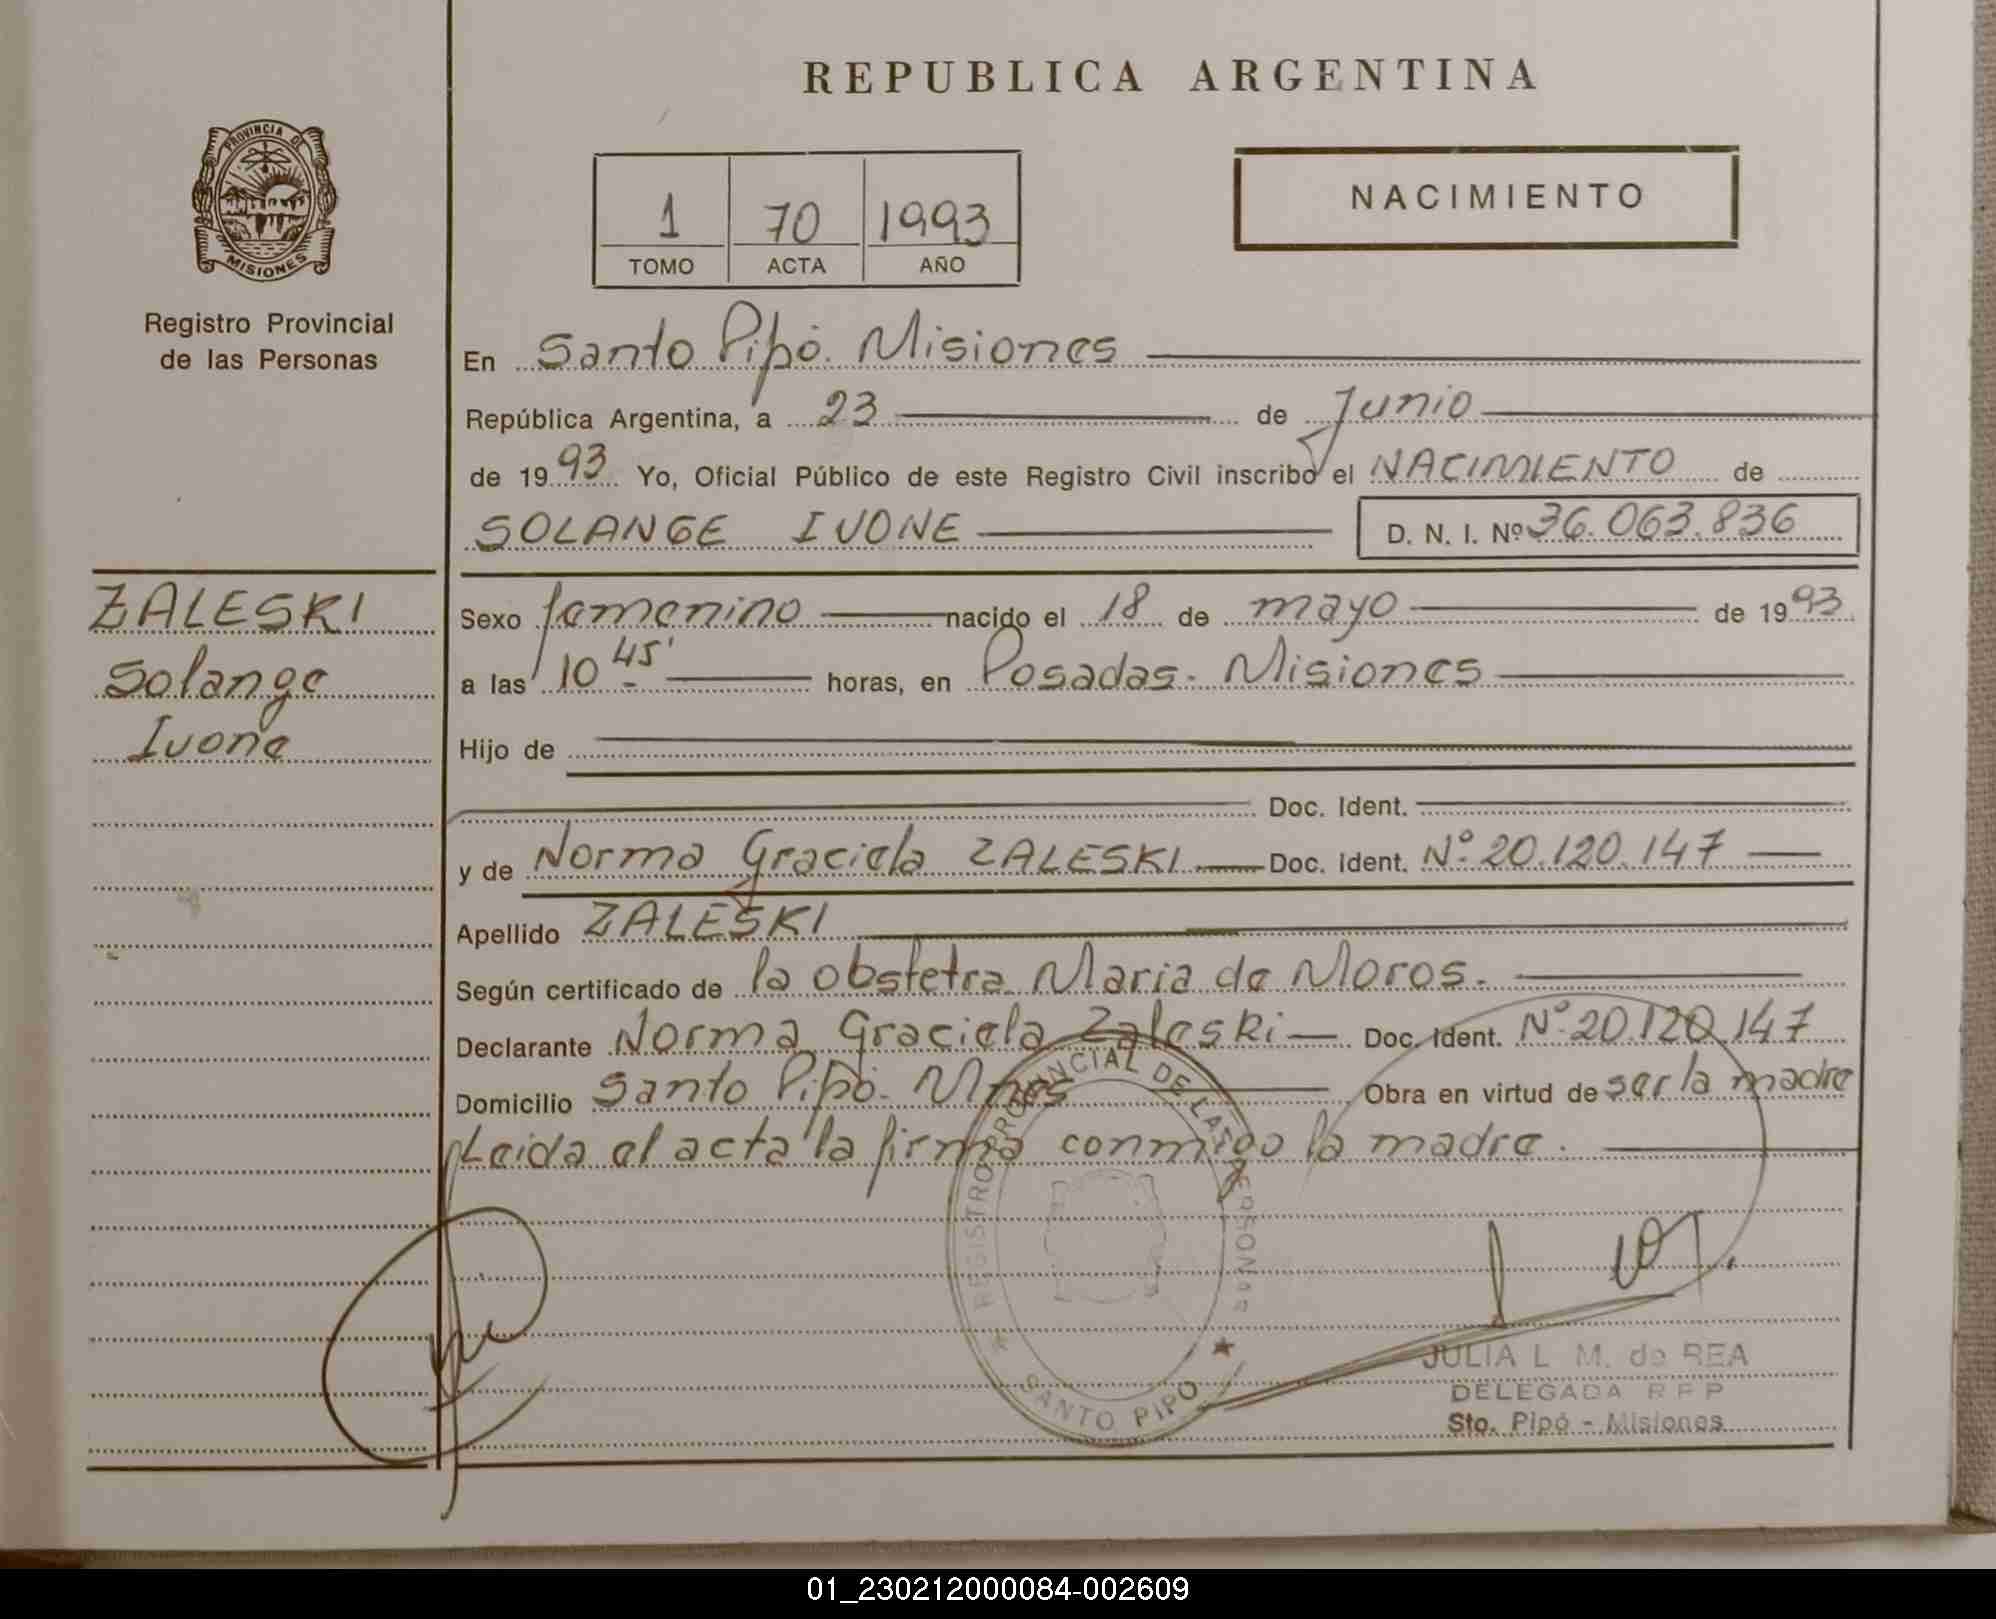 REPUBLICA ARGENTINA
PROVINCIA DE
MISIONES
Registro Provincial
de las Personas
1 70 1993
TOMO ACTA AÑO
NACIMIENTO
En Santo Pipó. Misiones
República Argentina, a 23 de Junio
de 1993 Yo, Oficial Público de este Registro Civil inscribo el NACIMIENTO de
SOLANGE IVONE D. N. I. Nº 36.063.836
ZALESKI
Solange
Ivone
Sexo femenino nacido el 18 de mayo de 1993
a las 10 45' horas, en Posadas. Misiones
Hijo de
Doc. Ident.
y de Norma Graciela ZALESKI Doc. Ident. Nº 20.120.147
Apellido ZALESKI
Según certificado de la obstetra Maria de Moros.
Declarante Norma Graciela Zaleski Doc. Ident. Nº 20.120.147
Domicilio Santo Pipó. Mnes Obra en virtud de ser la madre
Leida el acta la firma conmigo la madre.
REGISTRO PROVINCIAL DE LAS PERSONAS
SANTO PIPO
JULIA L. M. de REA
DELEGADA R P P
Sto. Pipó - Misiones
01_230212000084-002609